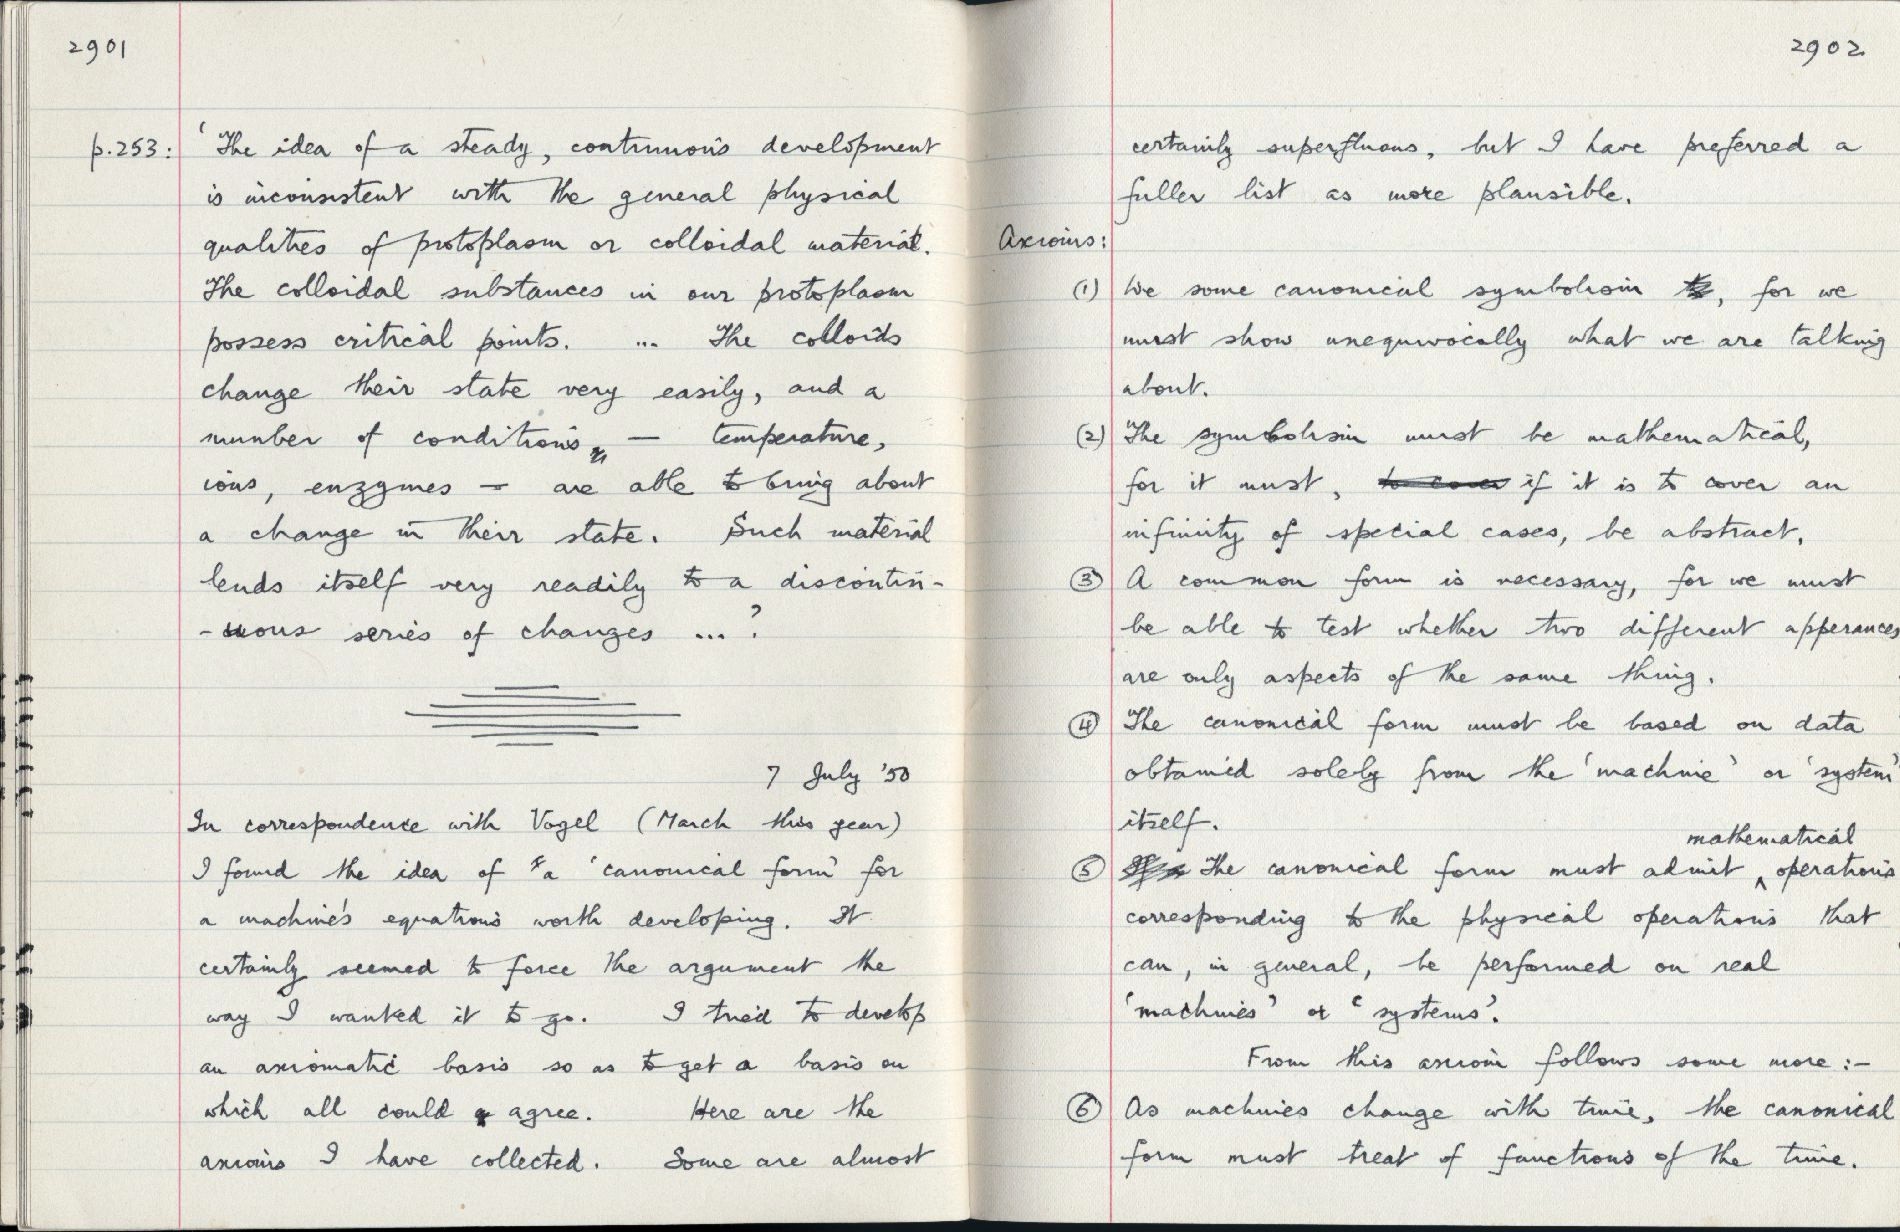 2901
p.253: 'The idea of a steady, continuous development
is inconsistent with the general physical
qualities of protoplasm or colloidal material.
The colloidal substances in our protoplasm
possess critical points. ... The colloids
change their state very easily, and a
number of conditions, — temperature,
ions, enzymes — are able to bring about
a change in their state. Such material
lends itself very readily to a discontin-
-uous series of changes ...'.
7 July '50
In correspondence with Vogel (March this year)
I found the idea of a 'canonical form' for
a machine's equations worth developing. It
certainly seemed to force the argument the
way I wanted it to go. I tried to develop
an axiomatic basis so as to get a basis on
which all could agree. Here are the
axioms I have collected. Some are almost
2902
certainly superfluous, but I have preferred a
fuller list as more plausible.
Axioms:
(1) We some canonical symbolism, for we
must show unequivocally what we are talking
about.
(2) The symbolism must be mathematical,
for it must, to cover if it is to cover an
infinity of special cases, be abstract.
(3) A common form is necessary, for we must
be able to test whether two different apperances
are only aspects of the same thing.
(4) The canonical form must be based on data
obtained solely from the 'machine' or 'system'
itself.
mathematical
(5) The canonical form must admit ‸ operations
corresponding to the physical operations that
can, in general, be performed on real
'machines' or 'systems'.
From this axiom follows some more:-
(6) As machines change with time, the canonical
form must treat of functions of the time.